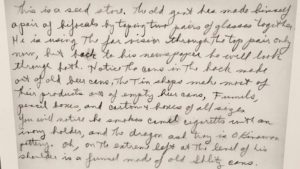 This is a seed store. The old gent has made himself
a pair of bifocals by taping two pairs of glasses together.
He is using the far vision through the top pair only
now, but back to his newspaper he will look
through both. Notice the cans in the back made
out of old beer cans. The Tin shops made most of
their products out of empty beer cans, Funnels,
pencil boxes, and cartons & boxes of all sizes
You will notice he smokes camel cigaretts with an
ivory holder, and the dragon ash tray is Okinawan
pottery. Oh, on the extreme left at the level of his
shoulder is a funnel made of old Schlitz cans.